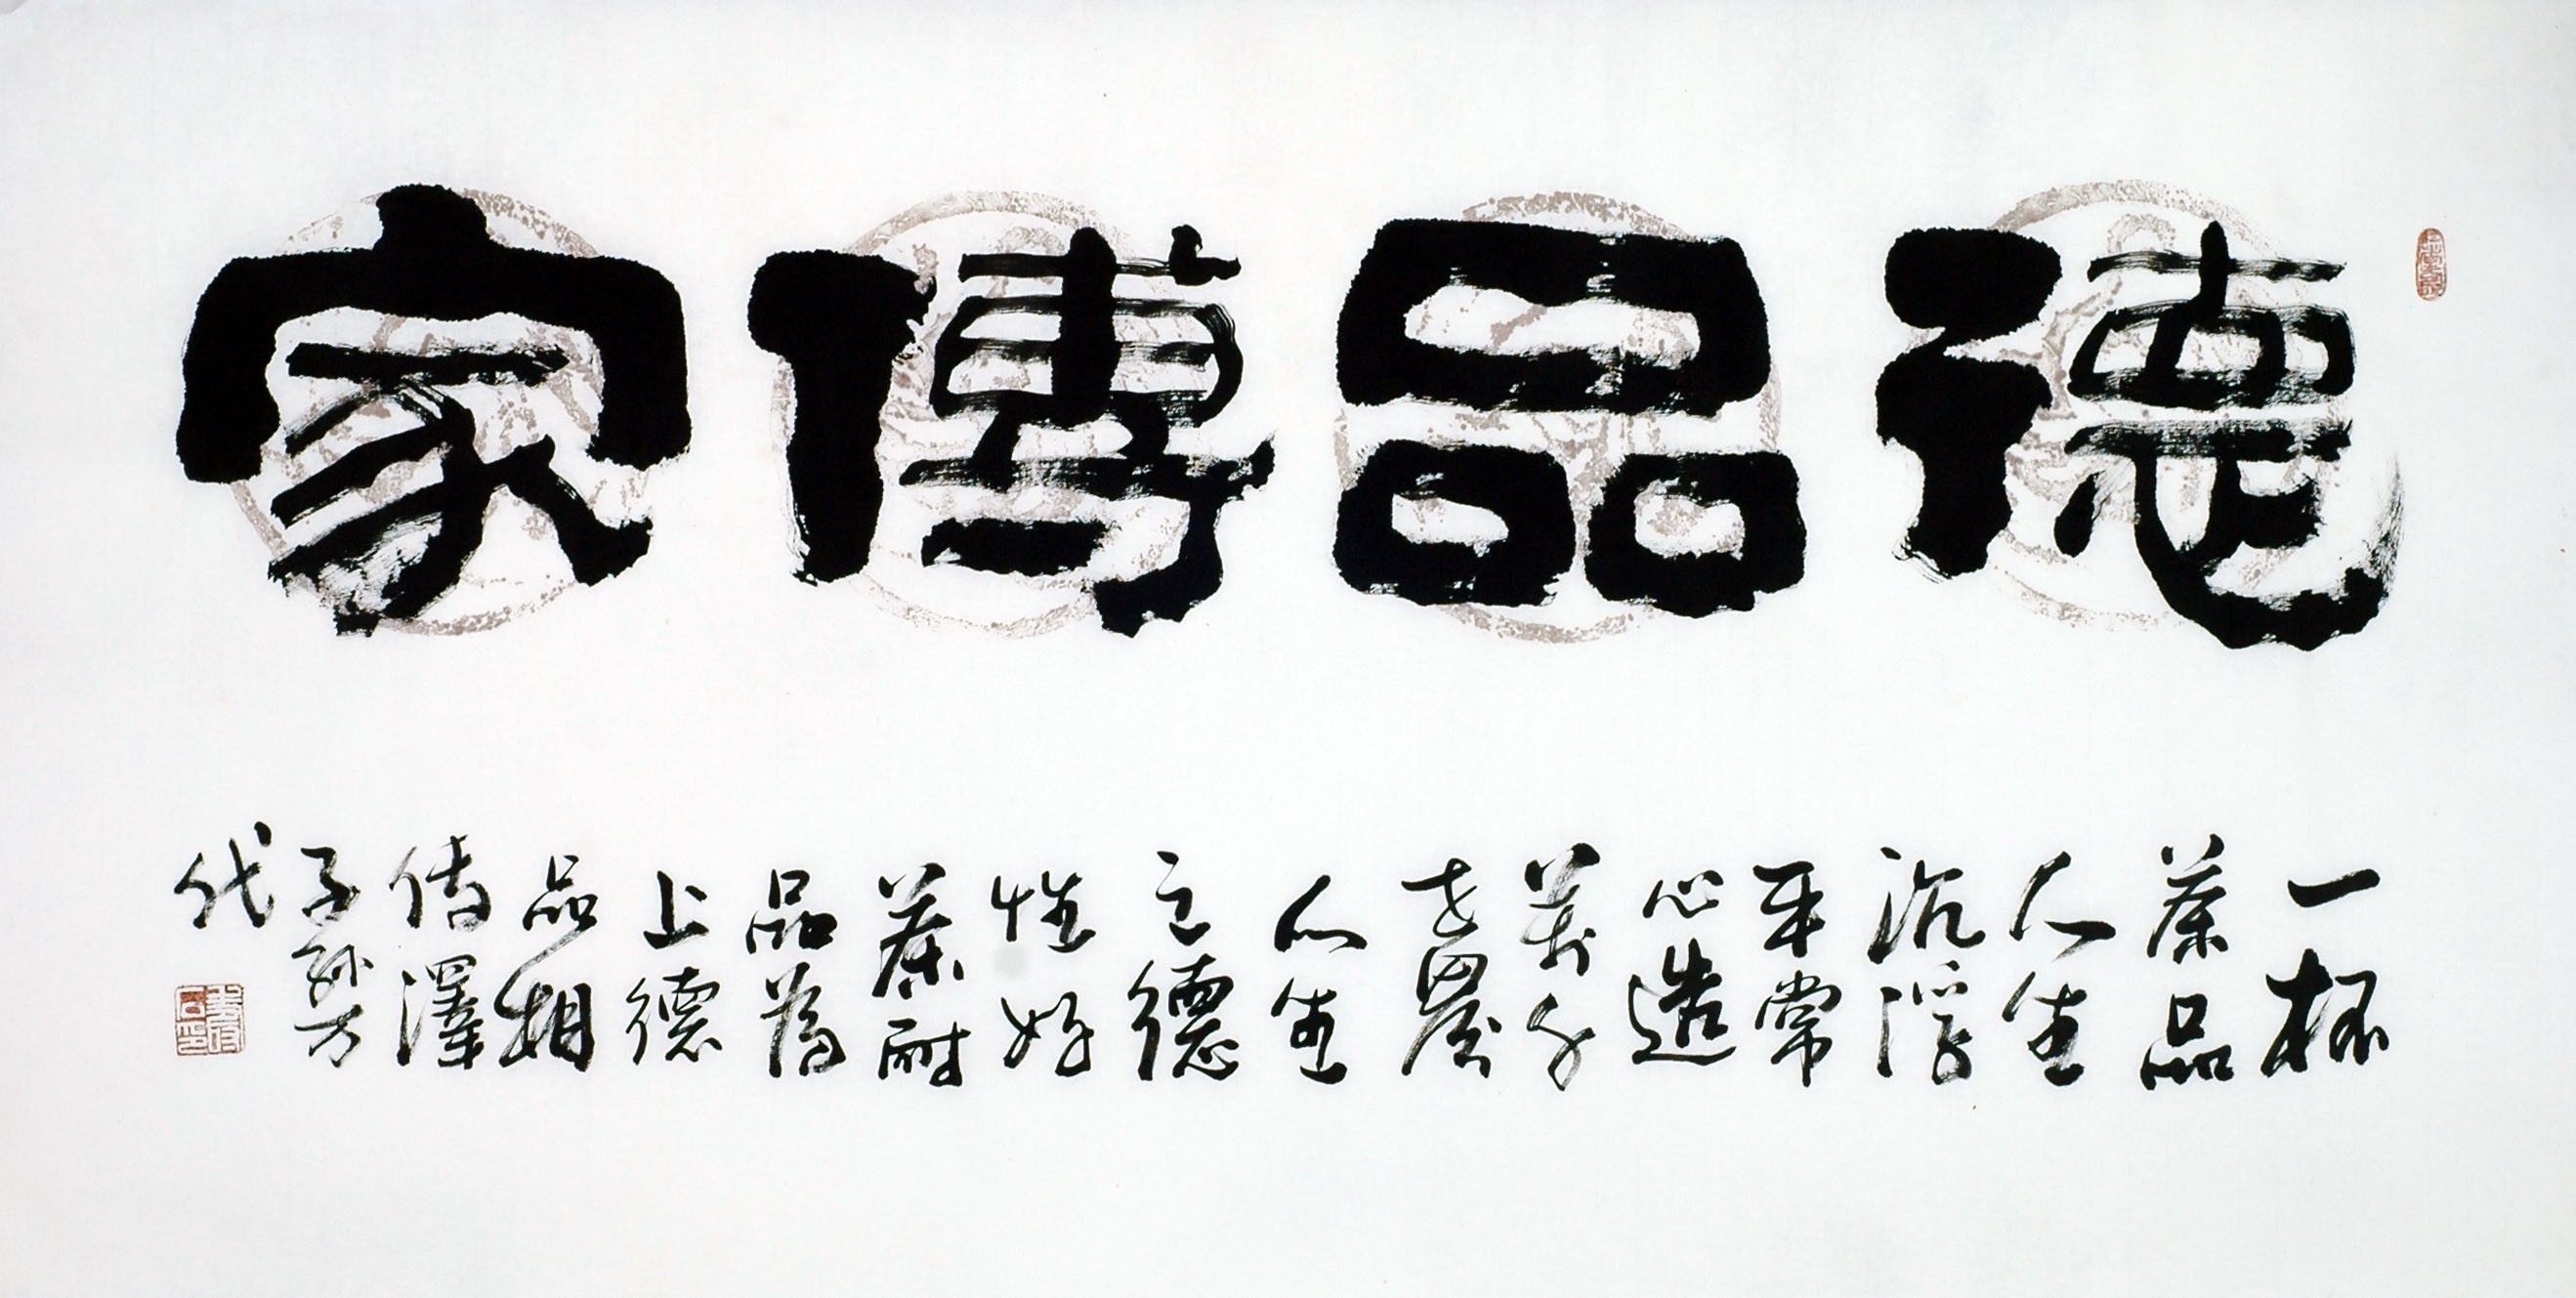 德品傳家
一杯
茶品
人生
沉浮
平常
心造
萬千
世界
人生
立德
性好
茶耐
品為
上德
品相
传澤
子孫万
代